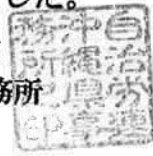 した。
務所
自治労連
沖縄県事
務所印